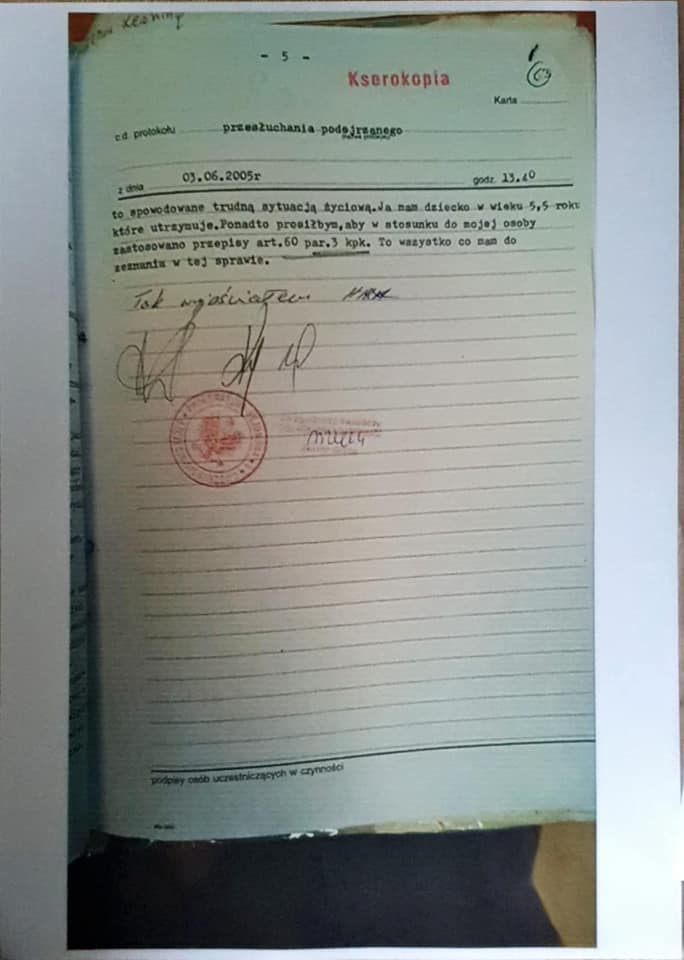 - 5 -
Kserokopia
Karta
c.d. protokołu przesłuchania podejrzanego
z dnia 03.06.2005r godz. 13.40
to spowodowane trudną sytuacją życiową.Ja mam dziecko w wieku 5,5 roku
które utrzymuję.Ponadto prosiłbym,aby w stosunku do mojej osoby
zastosowano przepisy art.60 par.3 kpk. To wszystko co mam do
zeznania w tej sprawie.
Tak wyjaśniałem
podpisy osób uczestniczących w czynności